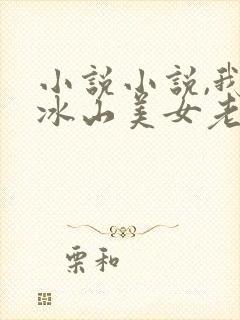 小説小説,我
冰山美女老
栗和